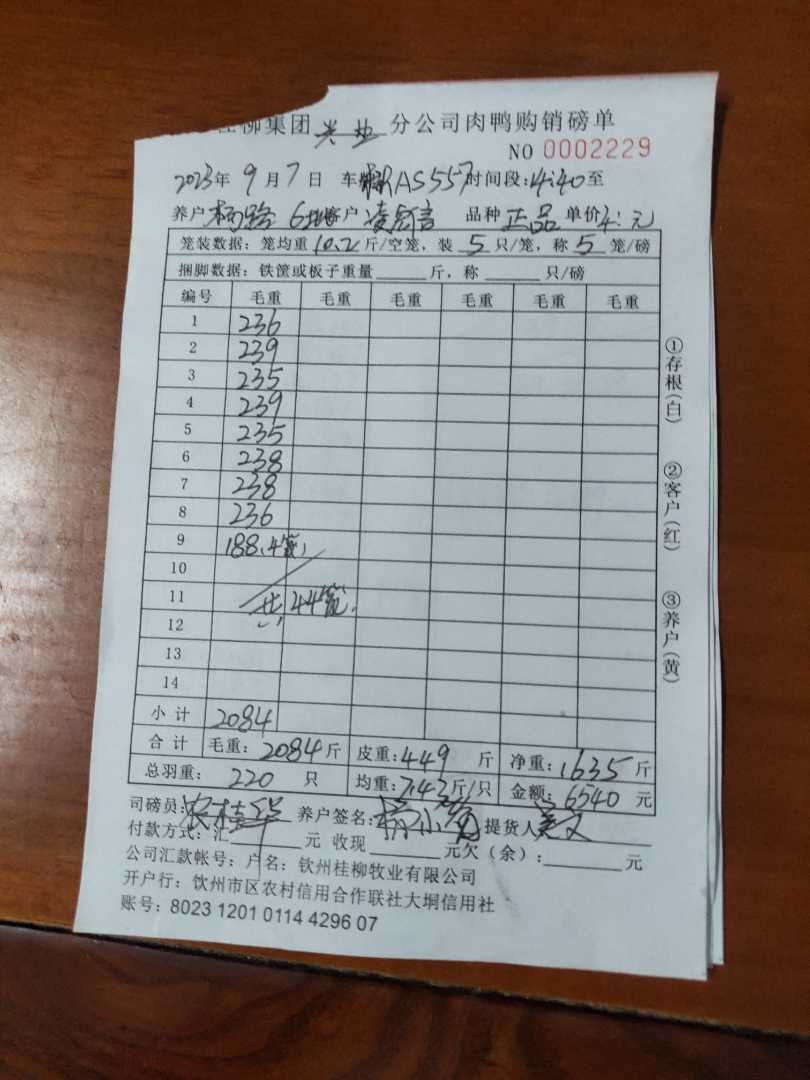 柳集团兴业分公司肉鸭购销磅单
NO 0002229
2023年9月7日 车 RAS557 时间段:4:40至
养户 杨路 6 客户 凌 言 品种 正品 单价4. 元
笼装数据:笼均重10.2斤/空笼,装5只/笼,称5笼/磅
捆脚数据:铁筐或板子重量____斤,称____只/磅
编号 毛重 毛重 毛重 毛重 毛重 毛重
1 236
2 239
3 235
4 239
5 235
6 238
7 238
8 236
9 188(4笼)
10
11 共44笼.
12
13
14
小计 2084
合计 毛重:2084斤 皮重:449斤 净重:1635斤
总羽重:220只 均重:7.43斤/只 金额:6540元
司磅员:农桂华 养户签名:杨小 提货人
付款方式:汇____元 收现____元欠(余):____元
公司汇款帐号:户名:钦州桂柳牧业有限公司
开户行:钦州市区农村信用合作联社大垌信用社
账号:8023 1201 0114 4296 07
①存根(白)
②客户(红)
③养户(黄)